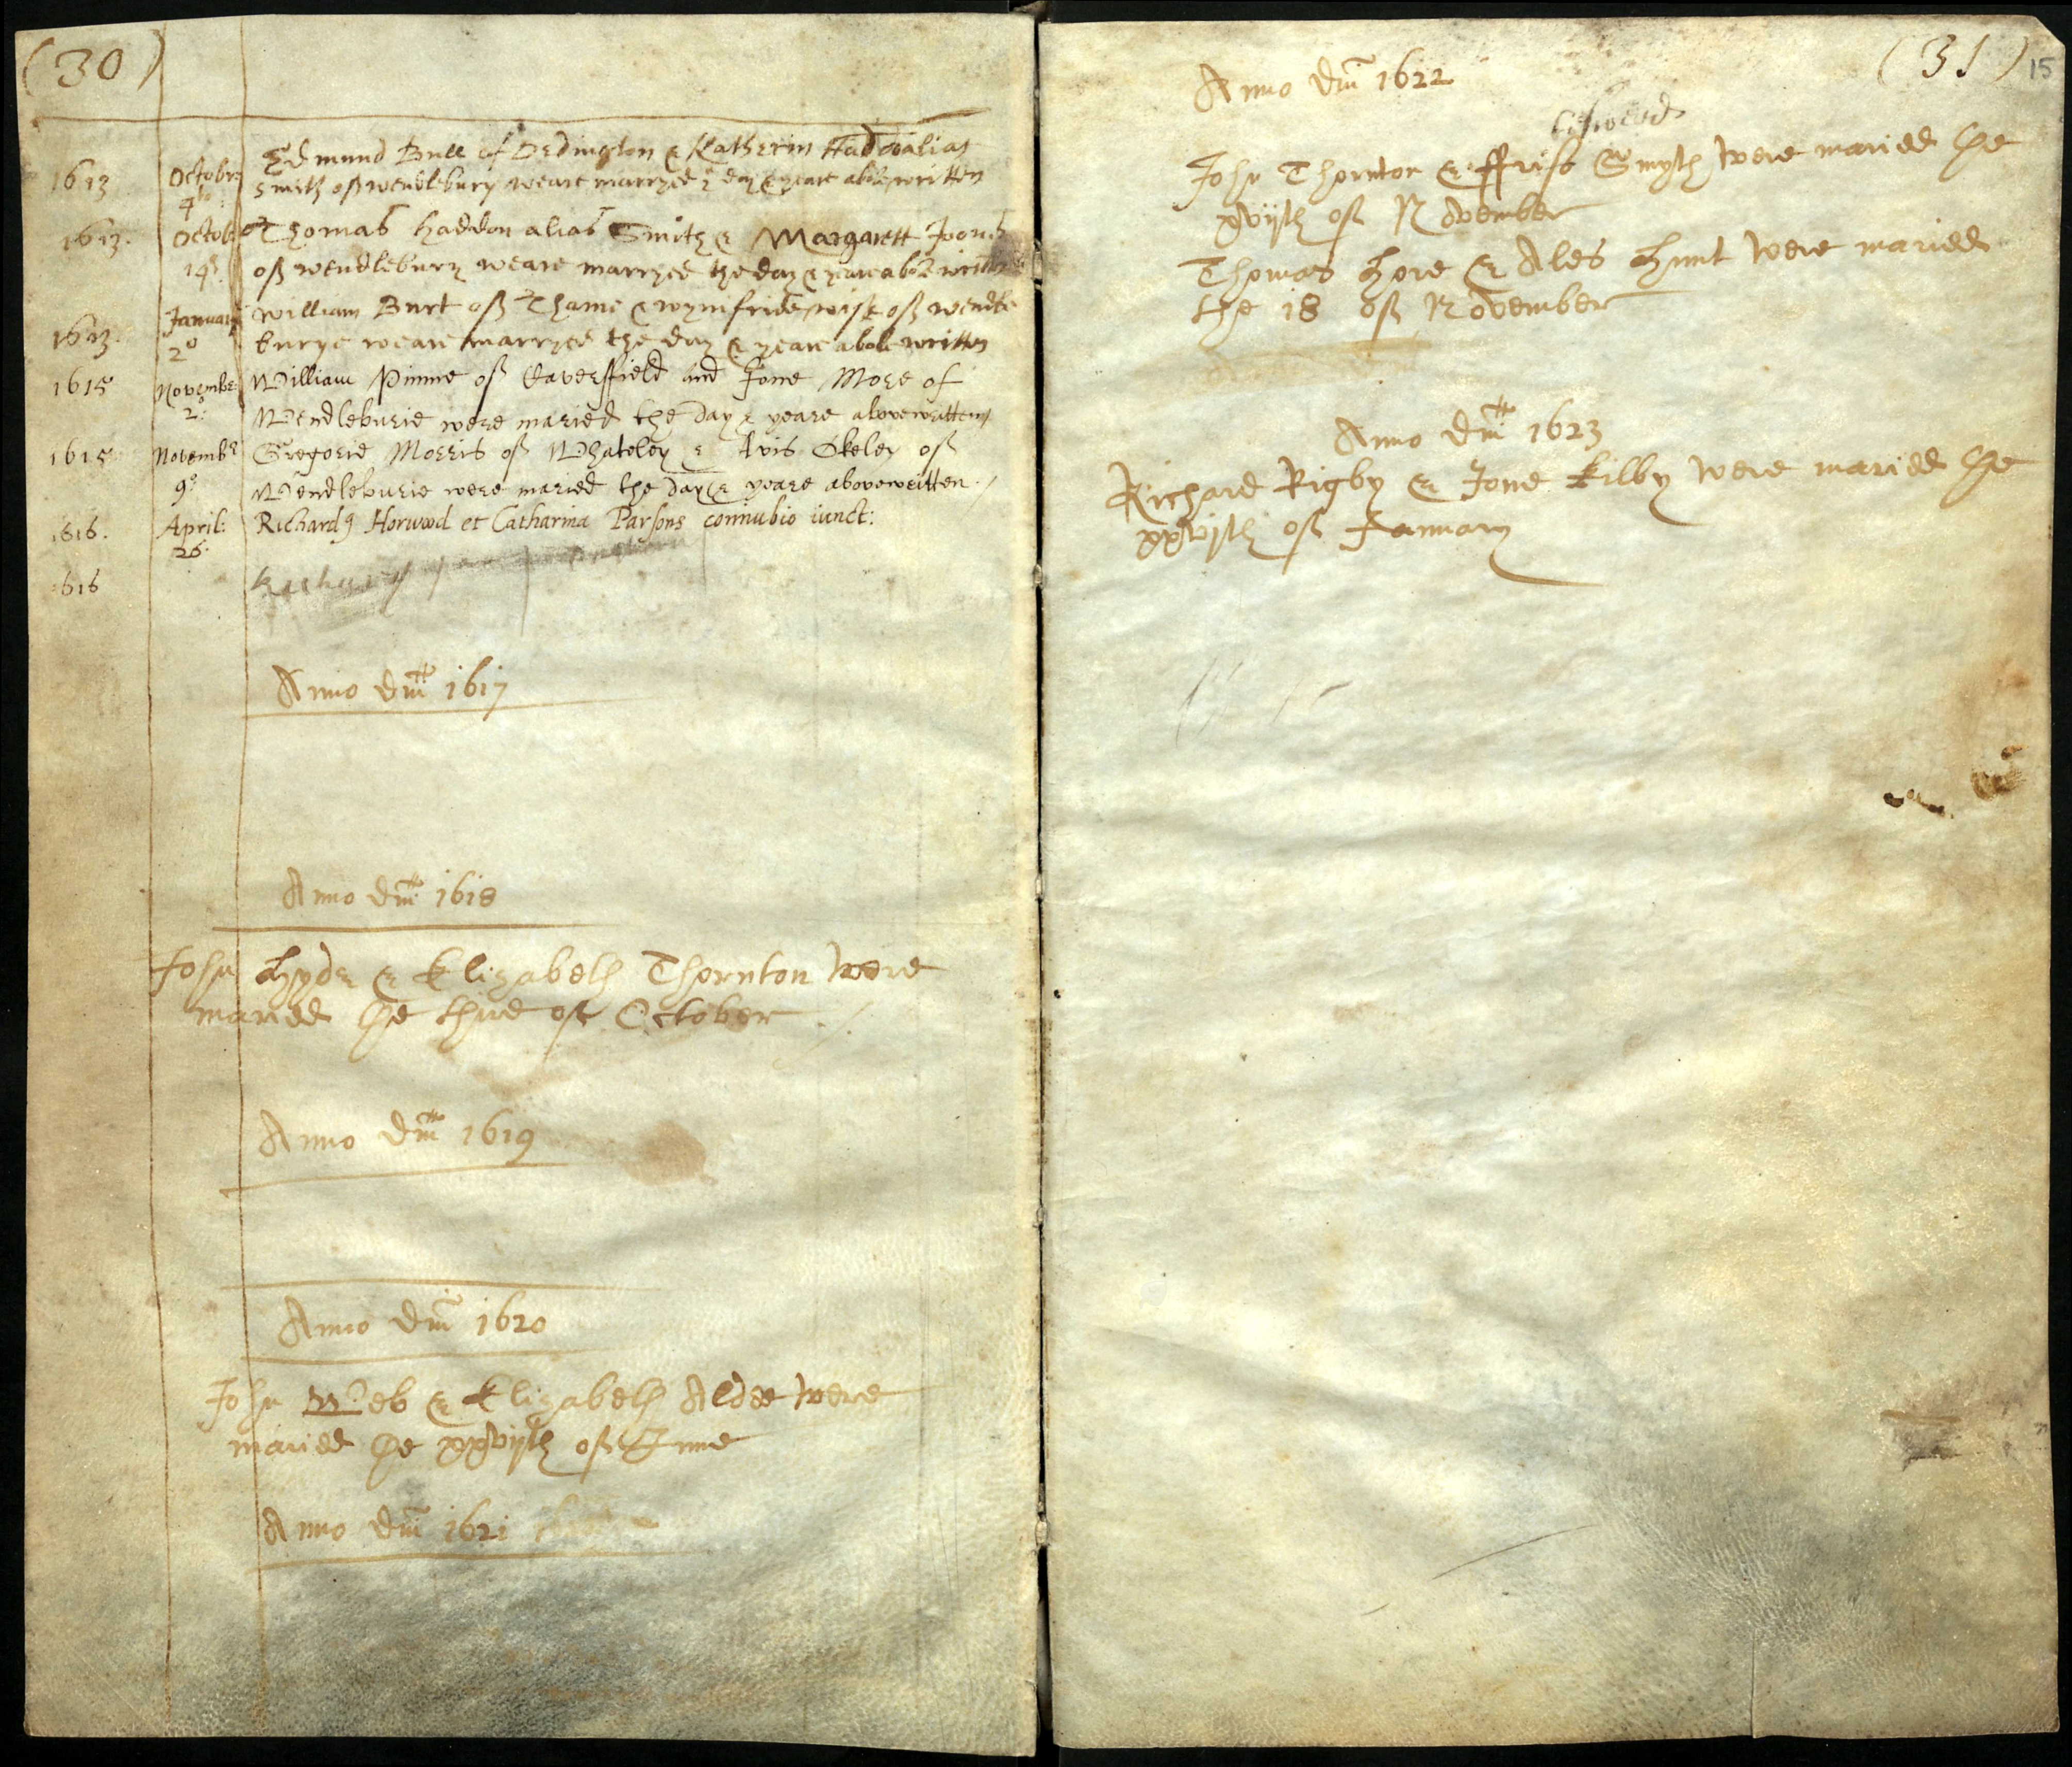 (30)
1613 Octobr Edmund Bull of Dedington & Katherin Haddō alias
4to: Smith of wendlebury weare marryed ye day & yeare above written
1613. Octob Thomas haddon alias Smith & Margarett
14o of wendlebury weare marryed the day & yeare above written
1613. January William Burt of Thame & wynifride wise of wendle
2o burye weare marryed the day & yeare above written
1615 Novembr William Pinne of Caversfield and Jone More of
2o: Wendleburie were maried the day & yeare abovewritten
1615 Novembr Gregorie Morris of Whateley & Avis Okeley of
9o Wendleburie were maried the day & yeare abovewritten./
1616. April: Richardq Horwood et Catharina Parsons connubio iunct:
26.
1616
Anno dm̄ 1617
Anno dm̄ 1618
John Hyde & Elizabeth Thornton were
maried the third of October ./
Anno dm̄ 1619
Anno dm̄ 1620
John Web & Elizabeth Aldee were
maried the xxvijth of June
Anno dm̄ 1621
(31) 15
Anno dm̄ 1622
John Thornton & Smyth were maried the
xviijth of November
Thomas Hore & Ales Hunt were maried
the 18 of November
Anno dm̄ 1623
Richard Rigby & Jone Kilby were maried the
xxvijth of January